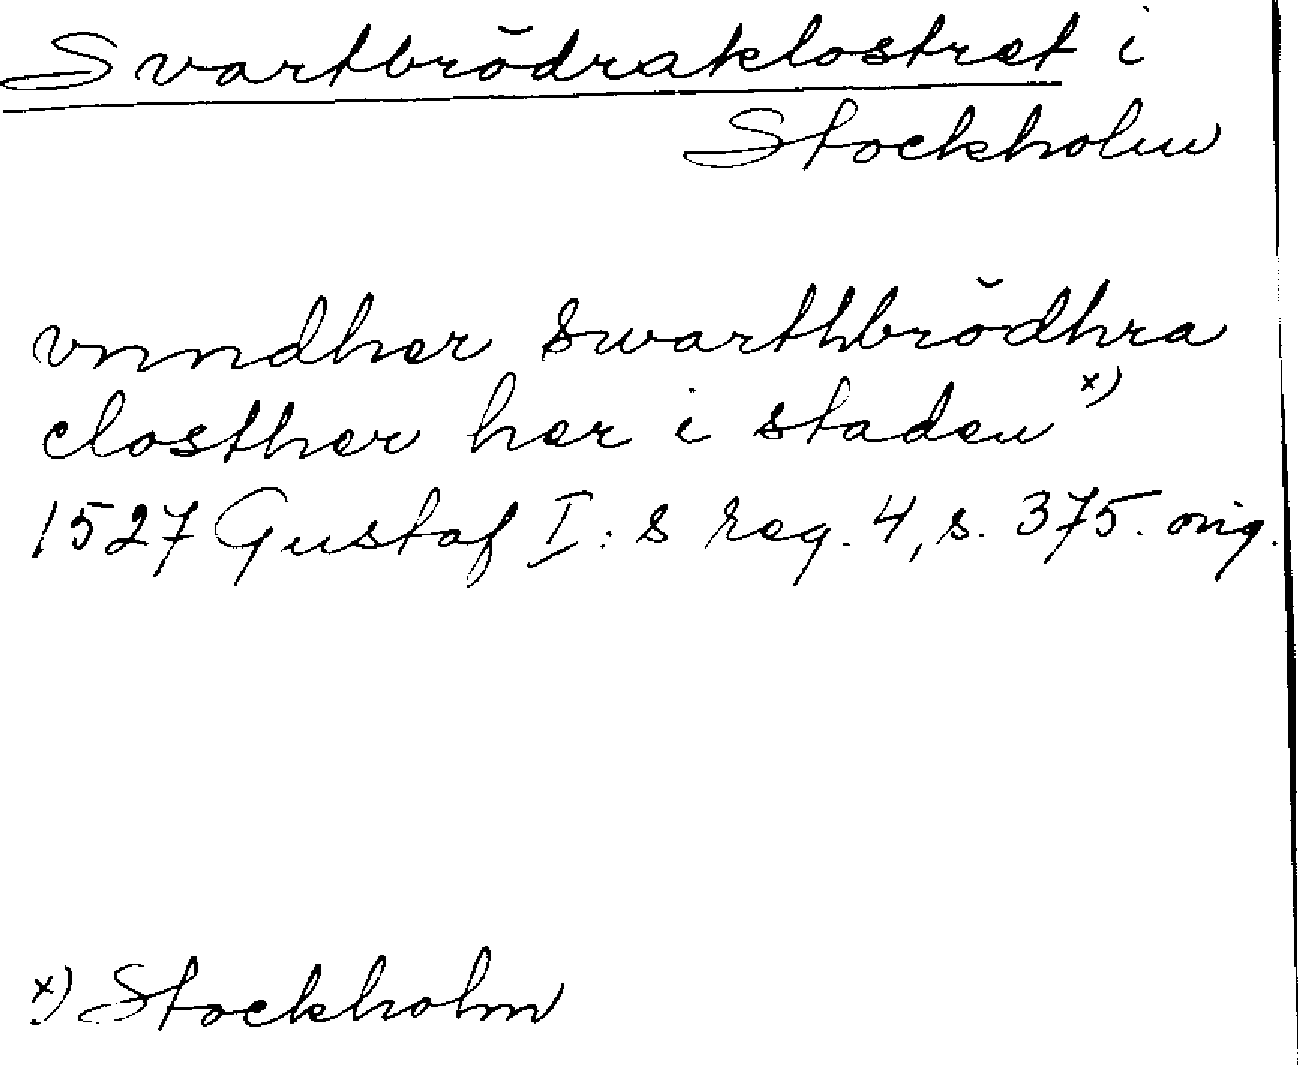 Svartbrödraklostret i
Stockholm
vnndher swarthbrödhra
closther her i staden x)
1527 Gustaf I:s reg. 4, s. 375. orig.
x) Stockholm